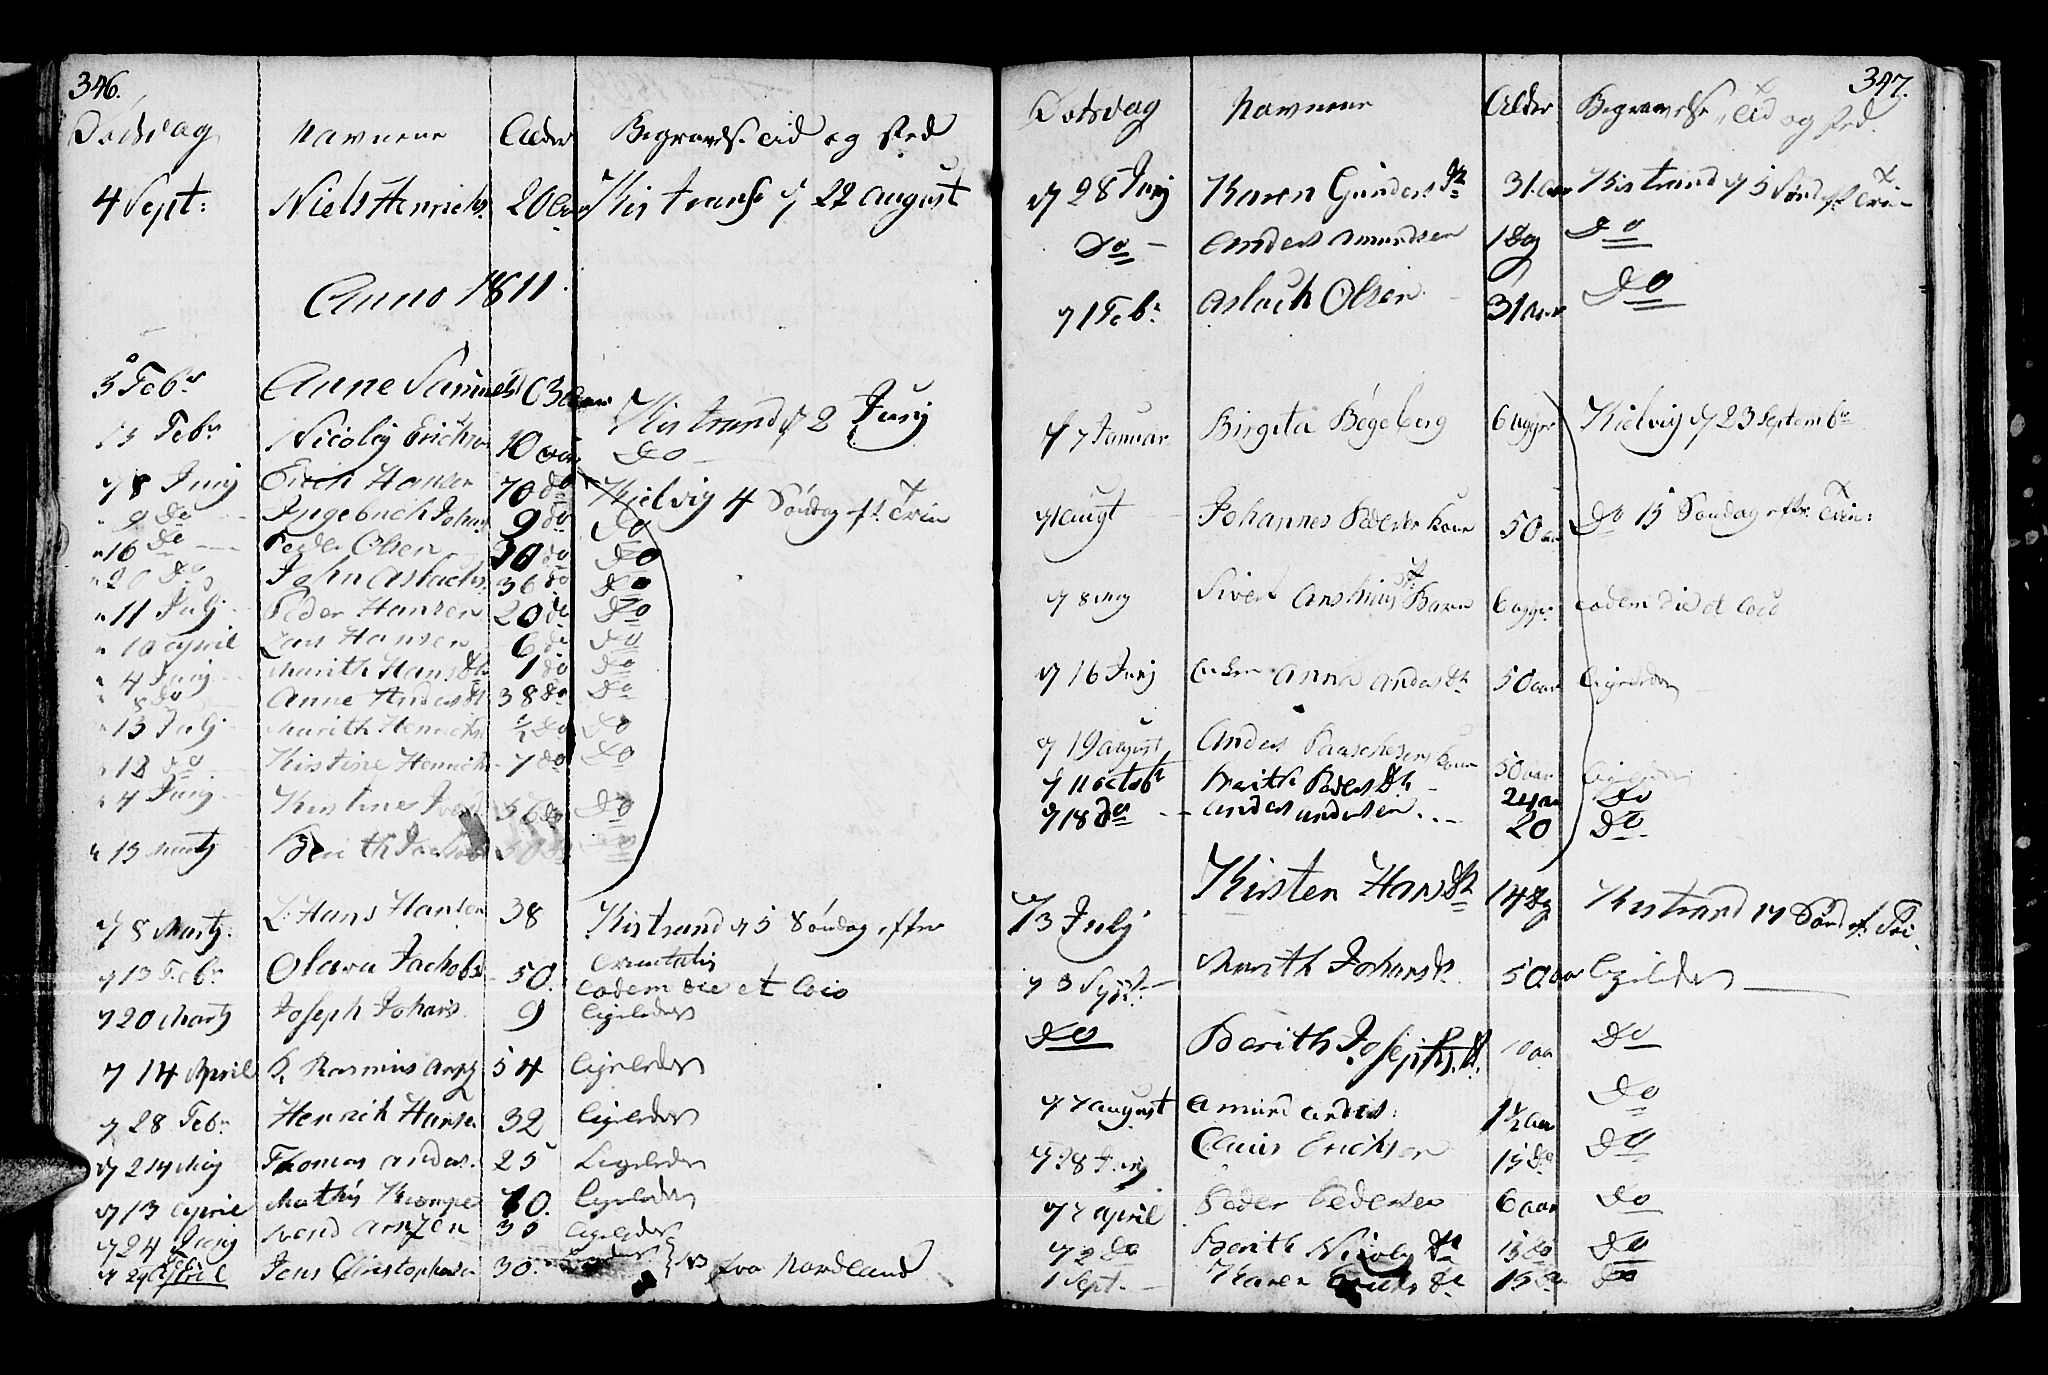 346.
Dødsdag Navnene Alder Begravelse Tid og sted
4 Sept: Niels Henrichs. 20 aar Kistrand d 22 august
Anno 1811.
5 Febr Anne Samuelsd 63 aar Kistrand d 2 Junij
15 Febr Nicolay Erichsen 10 aar Do
d 8 Junij Erich Hansen 70 do Kielvig 4 Søndag eft. Trin
" 9 do Ingebrech Johan 9 do Do
" 16 do Peder Olsen 30 do Do
" 20 do John Aslachs. 36 do Do
" 11 Julj Peder Hansen 20 do Do
" 10 april Lars Hansen 6 do Do
" 4 Junij Marith Hans Dtr 1 do Do
" 8 do Anne Anders Dt 38 do Do
" 13 Julj Marith Henrichs ½ do Do
" 18 do Kistine Henrichs 7 do Do
" 4 Junij Kirstine 56 do Do
" 13 Martj Berith Jacobs 30 Do
d 8 Martj. L. Hans Hansen 38 Kistrand d 5 Søndag efter
d 13 Febr Olava Jachobs 50. Trinitatis eodem die et loco
d 20 Martj Joseph Johans. 9 ligeledes
d 14 April Rasmus 54 ligeledes
d 28 Febr Henrich Hansen 32 ligeledes
d 24 Maij Thomas Anders. 25 Ligeledes
d 13 April Mathis Kiempe 70. ligeledes
d 24 Junij Arntzen 35 ligeledes
d 29 April Jens Christophersen 30. NB fra Nordland
347.
Dødsdag Navnene Alder Begravelse, Tid og sted.
d 28 Junij Karen Gunders Dtr 31 aar Kistrand d 5 Sønd eft Trin
Do - Anders Amundsen 1 Dag Do
d 1 Febr Aslach Olsen 31 aar Do
d 7 Januar Birgita Bøgeberg 6 uger Kielvig d 23 Septembr
d 1 augt Johannes Peders Kone 50 aar Do 15 Søndag eftr. Trin:
d 8 Sivert Barn 6 uger eodem die et loco
d 16 Junij Enken Anne Anders Dtr 50 aar ligeledes
d 19 august Anders Kone 50 aar ligeledes
d 11 octobr Berith Peders Dtr 24 aar Do
d 18 do Anders Andersen 20 Do
d 3 Julj Kirsten Hans Dtr 14 Dg Kistrand 17 Sønd ef. Tri.
d 3 Sept. Marith Johans Dtr 50 aar ligeledes
Do Berith Josephs. Dtr. 10 aar Do
d 7 august Amund Anders: 1½ aar Do
d 28 Junij Claus Erichsen 15 do Do
d 7 April Peder Pedersen 6 aar Do
d 2 do Berith Nicolay Dtr 15 do Do
1 Sept. Karen Erichs Dtr 15 do Do